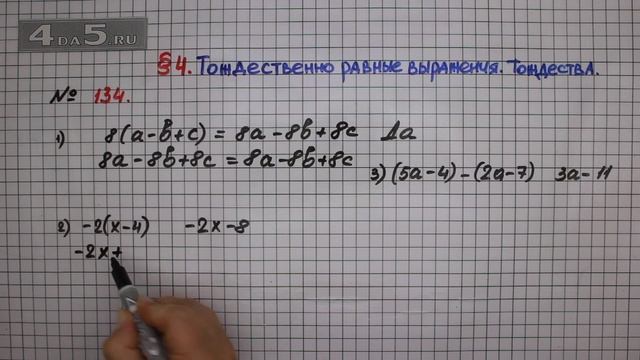 4DA5.RU
§4. Тождественно равные выражения. Тождества.
№ 134.
1) 8(a-b+c) = 8a-8b+8c Да
8a-8b+8c = 8a-8b+8c
3) (5a-4)-(2a-7) 3a-11
2) -2(x-4) -2x-8
-2x+